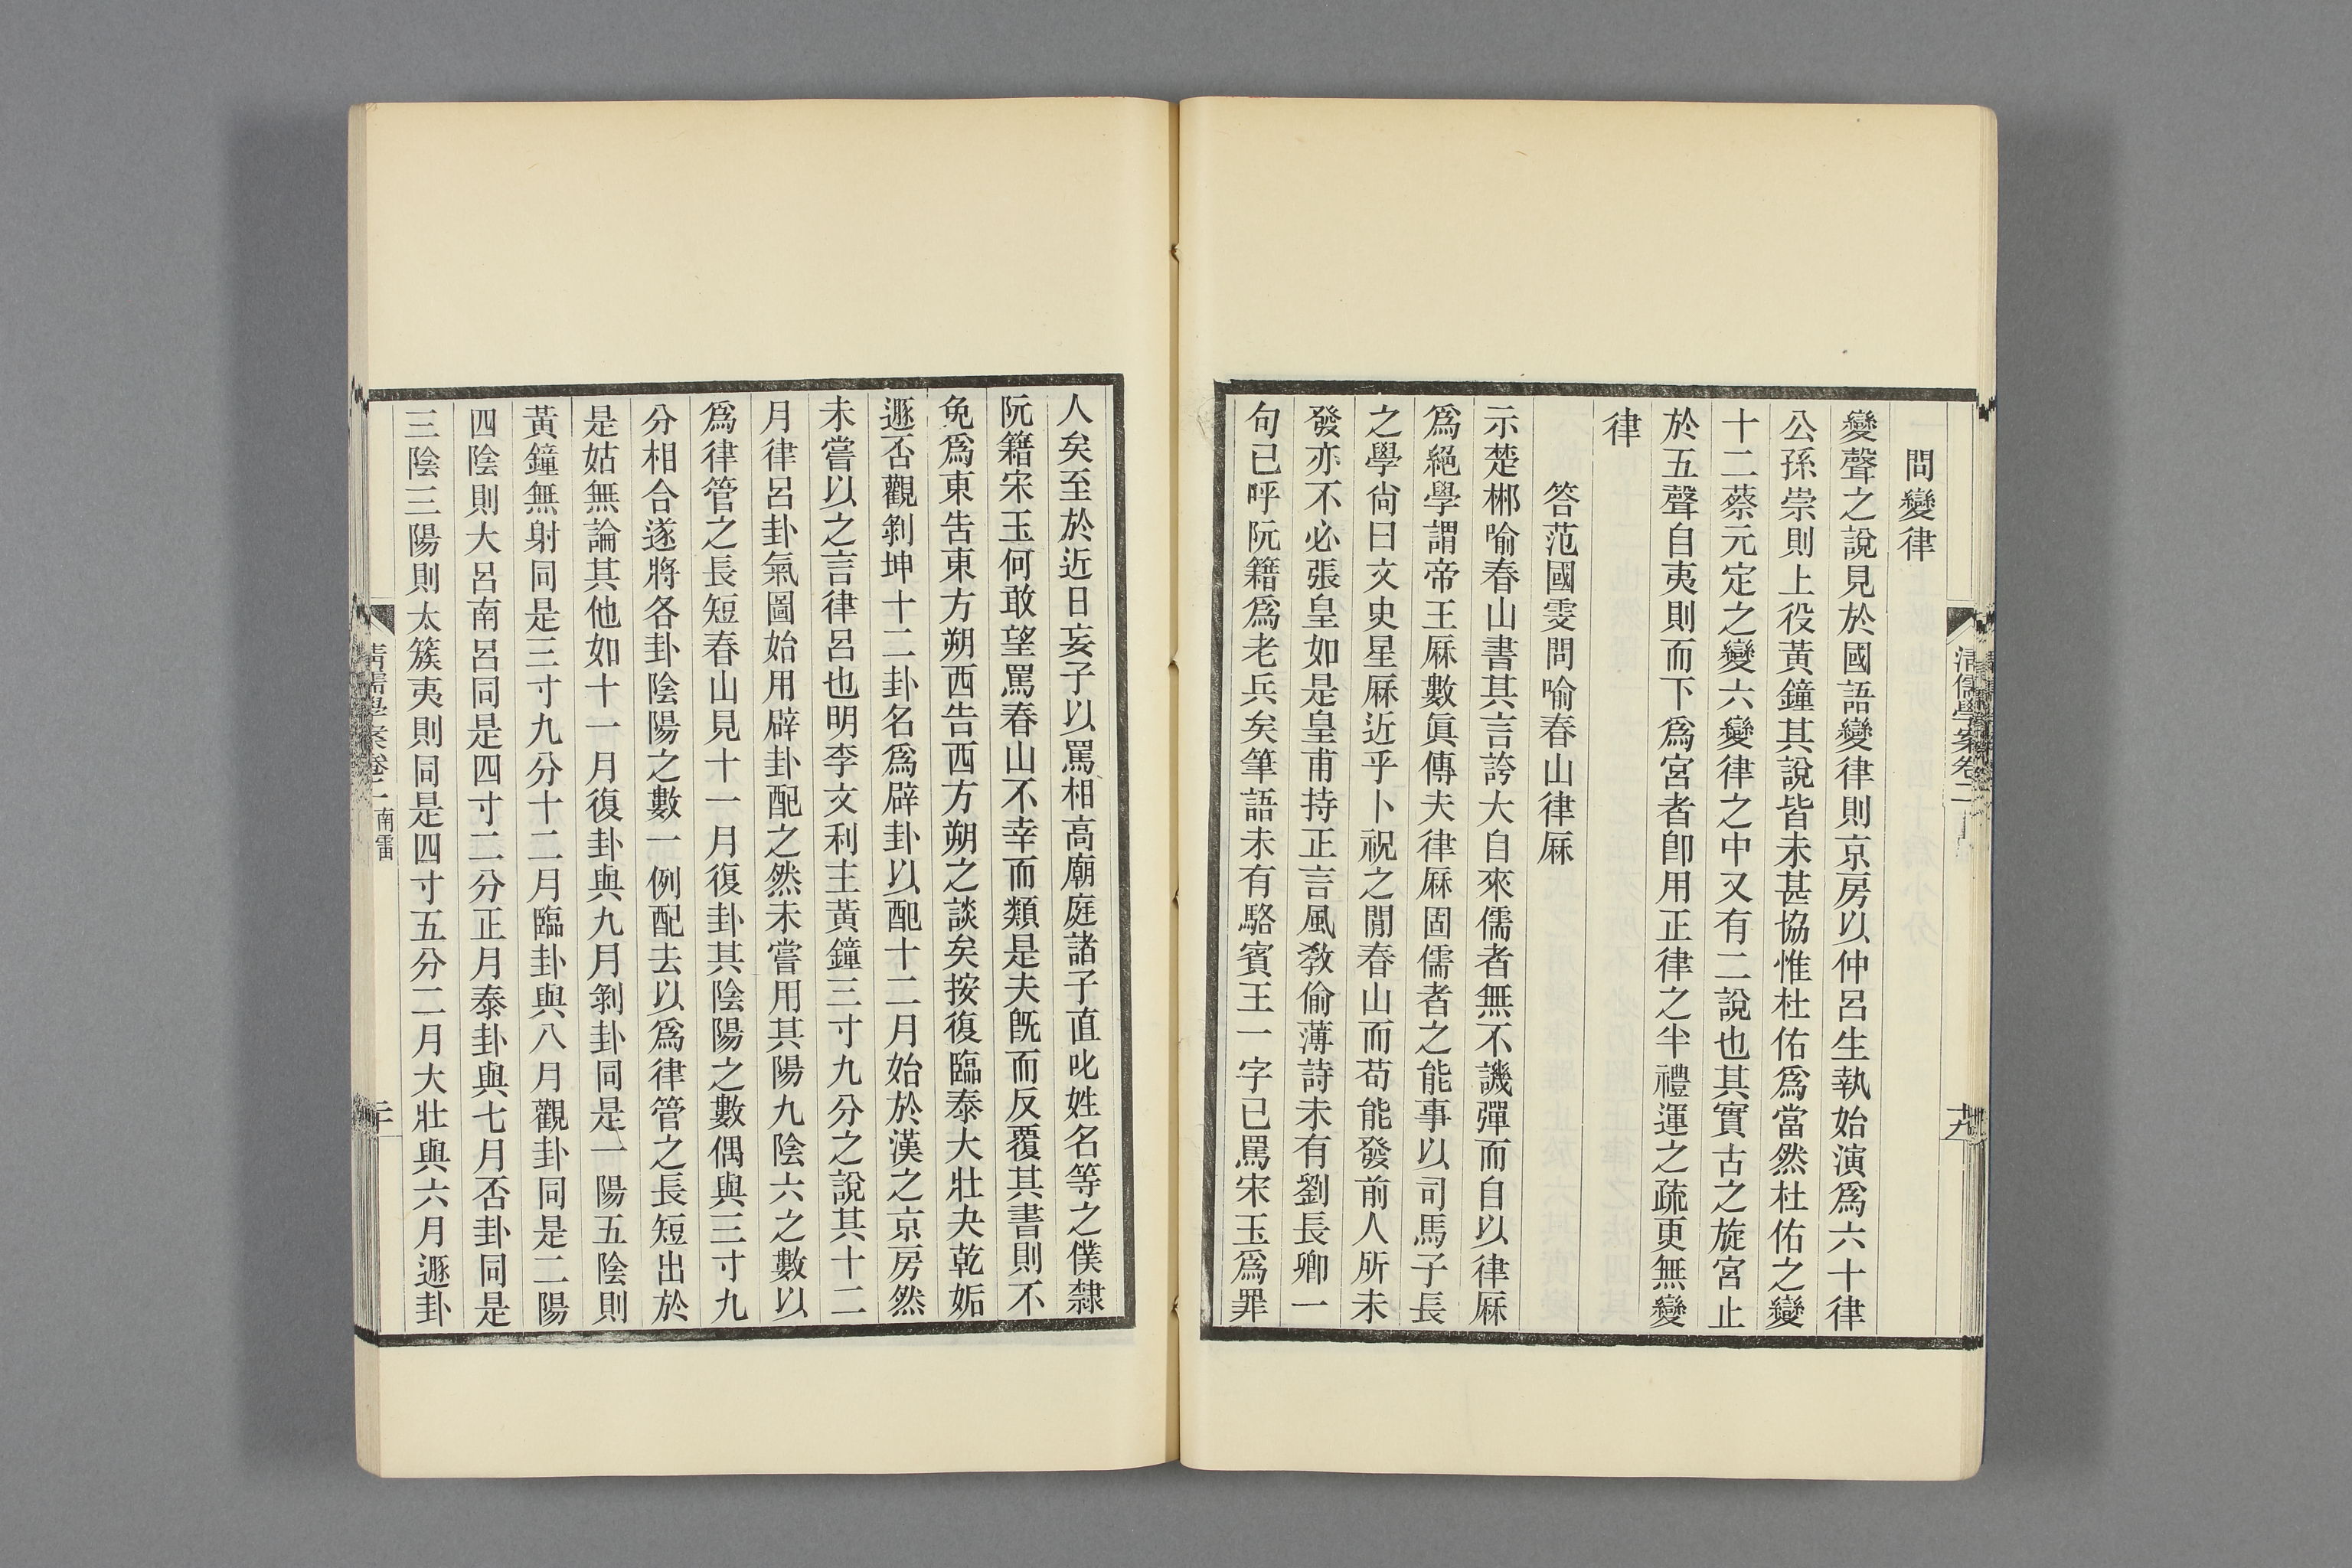 清儒學案卷二
十九
問變律
變聲之說見於國語變律則京房以仲呂生執始演爲六十律
公孫崇則上役黃鐘其說皆未甚協惟杜佑爲當然杜佑之變
十二蔡元定之變六變律之中又有二說也其實古之旋宮止
於五聲自夷則而下爲宮者卽用正律之半禮運之疏更無變
律
答范國雯問喻春山律厤
示楚郴喻春山書其言誇大自來儒者無不譏彈而自以律厤
爲絕學謂帝王厤數眞傳夫律厤固儒者之能事以司馬子長
之學尙曰文史星厤近乎卜祝之閒春山而苟能發前人所未
發亦不必張皇如是皇甫持正言風敎偷薄詩未有劉長卿一
句已呼阮籍爲老兵矣筆語未有駱賓王一字已罵宋玉爲罪
人矣至於近日妄子以罵相高廟庭諸子直叱姓名等之僕隸
阮籍宋玉何敢望罵春山不幸而類是夫旣而反覆其書則不
免爲東吿東方朔西告西方朔之談矣按復臨泰大壯夬乾姤
遯否觀剝坤十二卦名爲辟卦以配十二月始於漢之京房然
未嘗以之言律呂也明李文利主黃鐘三寸九分之說其十二
月律呂卦氣圖始用辟卦配之然未嘗用其陽九陰六之數以
爲律管之長短春山見十一月復卦其陰陽之數偶與三寸九
分相合遂將各卦陰陽之數一例配去以爲律管之長短出於
是姑無論其他如十一月復卦與九月剝卦同是一陽五陰則
黃鐘無射同是三寸九分十二月臨卦與八月觀卦同是二陽
四陰則大呂南呂同是四寸二分正月泰卦與七月否卦同是
三陰三陽則太簇夷則同是四寸五分二月大壯與六月遯卦
清儒學案卷二 南雷
二十